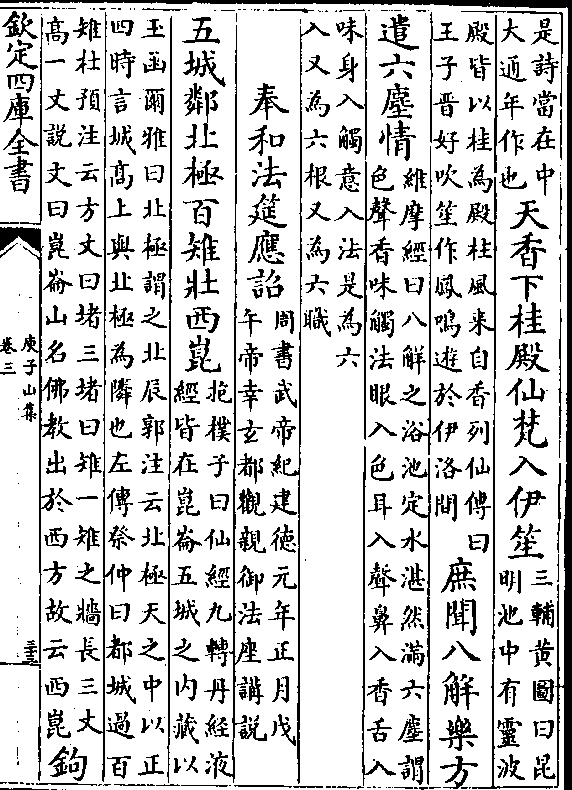 是詩當在中
大通年作也
天香下桂殿仙梵入伊笙
三輔黃圖曰昆
明池中有靈波
殿皆以桂為殿柱風来自香列仙傳曰
王子晉好吹笙作鳳鳴遊於伊洛間
庶聞八解樂方
遣六塵情
維摩經曰八解之浴池定水湛然滿六塵謂
色聲香味觸法眼入色耳入聲鼻入香舌入
味身入觸意入法是為六
入又為六根又為六職
奉和法筵應詔
周書武帝紀建德元年正月戊
午帝幸玄都觀親御法座講説
五城鄰北極百雉壯西崑
抱樸子曰仙經九轉丹經液
經皆在崑崙五城之内藏以
玉函爾雅曰北極謂之北辰郭注云北極天之中以正
四時言城髙上與北極為隣也左傳祭仲曰都城過百
雉杜預注云方丈曰堵三堵曰雉一雉之牆長三丈
髙一丈説文曰崑崙山名佛教出於西方故云西崑
鉤
欽定四庫全書
庾子山集
卷三